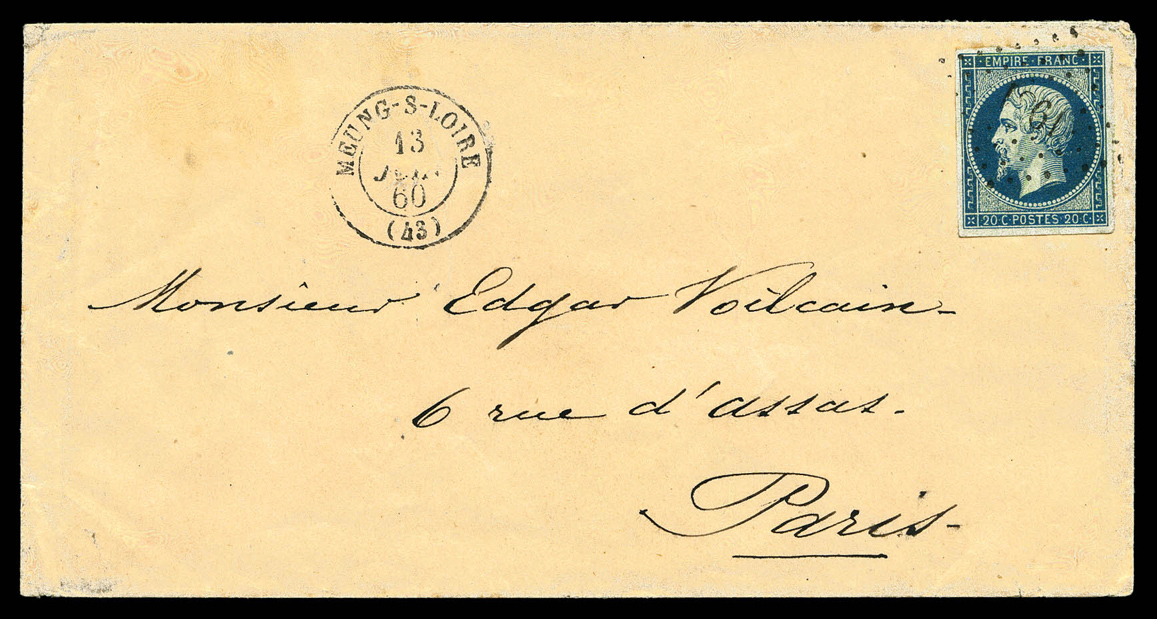 EMPIRE FRANC
MEUNG-S-LOIRE
13
60
(43)
20·C·POSTES 20·C·
Monsieur Edgar Voilcain-
6 rue d'assas.
Paris-